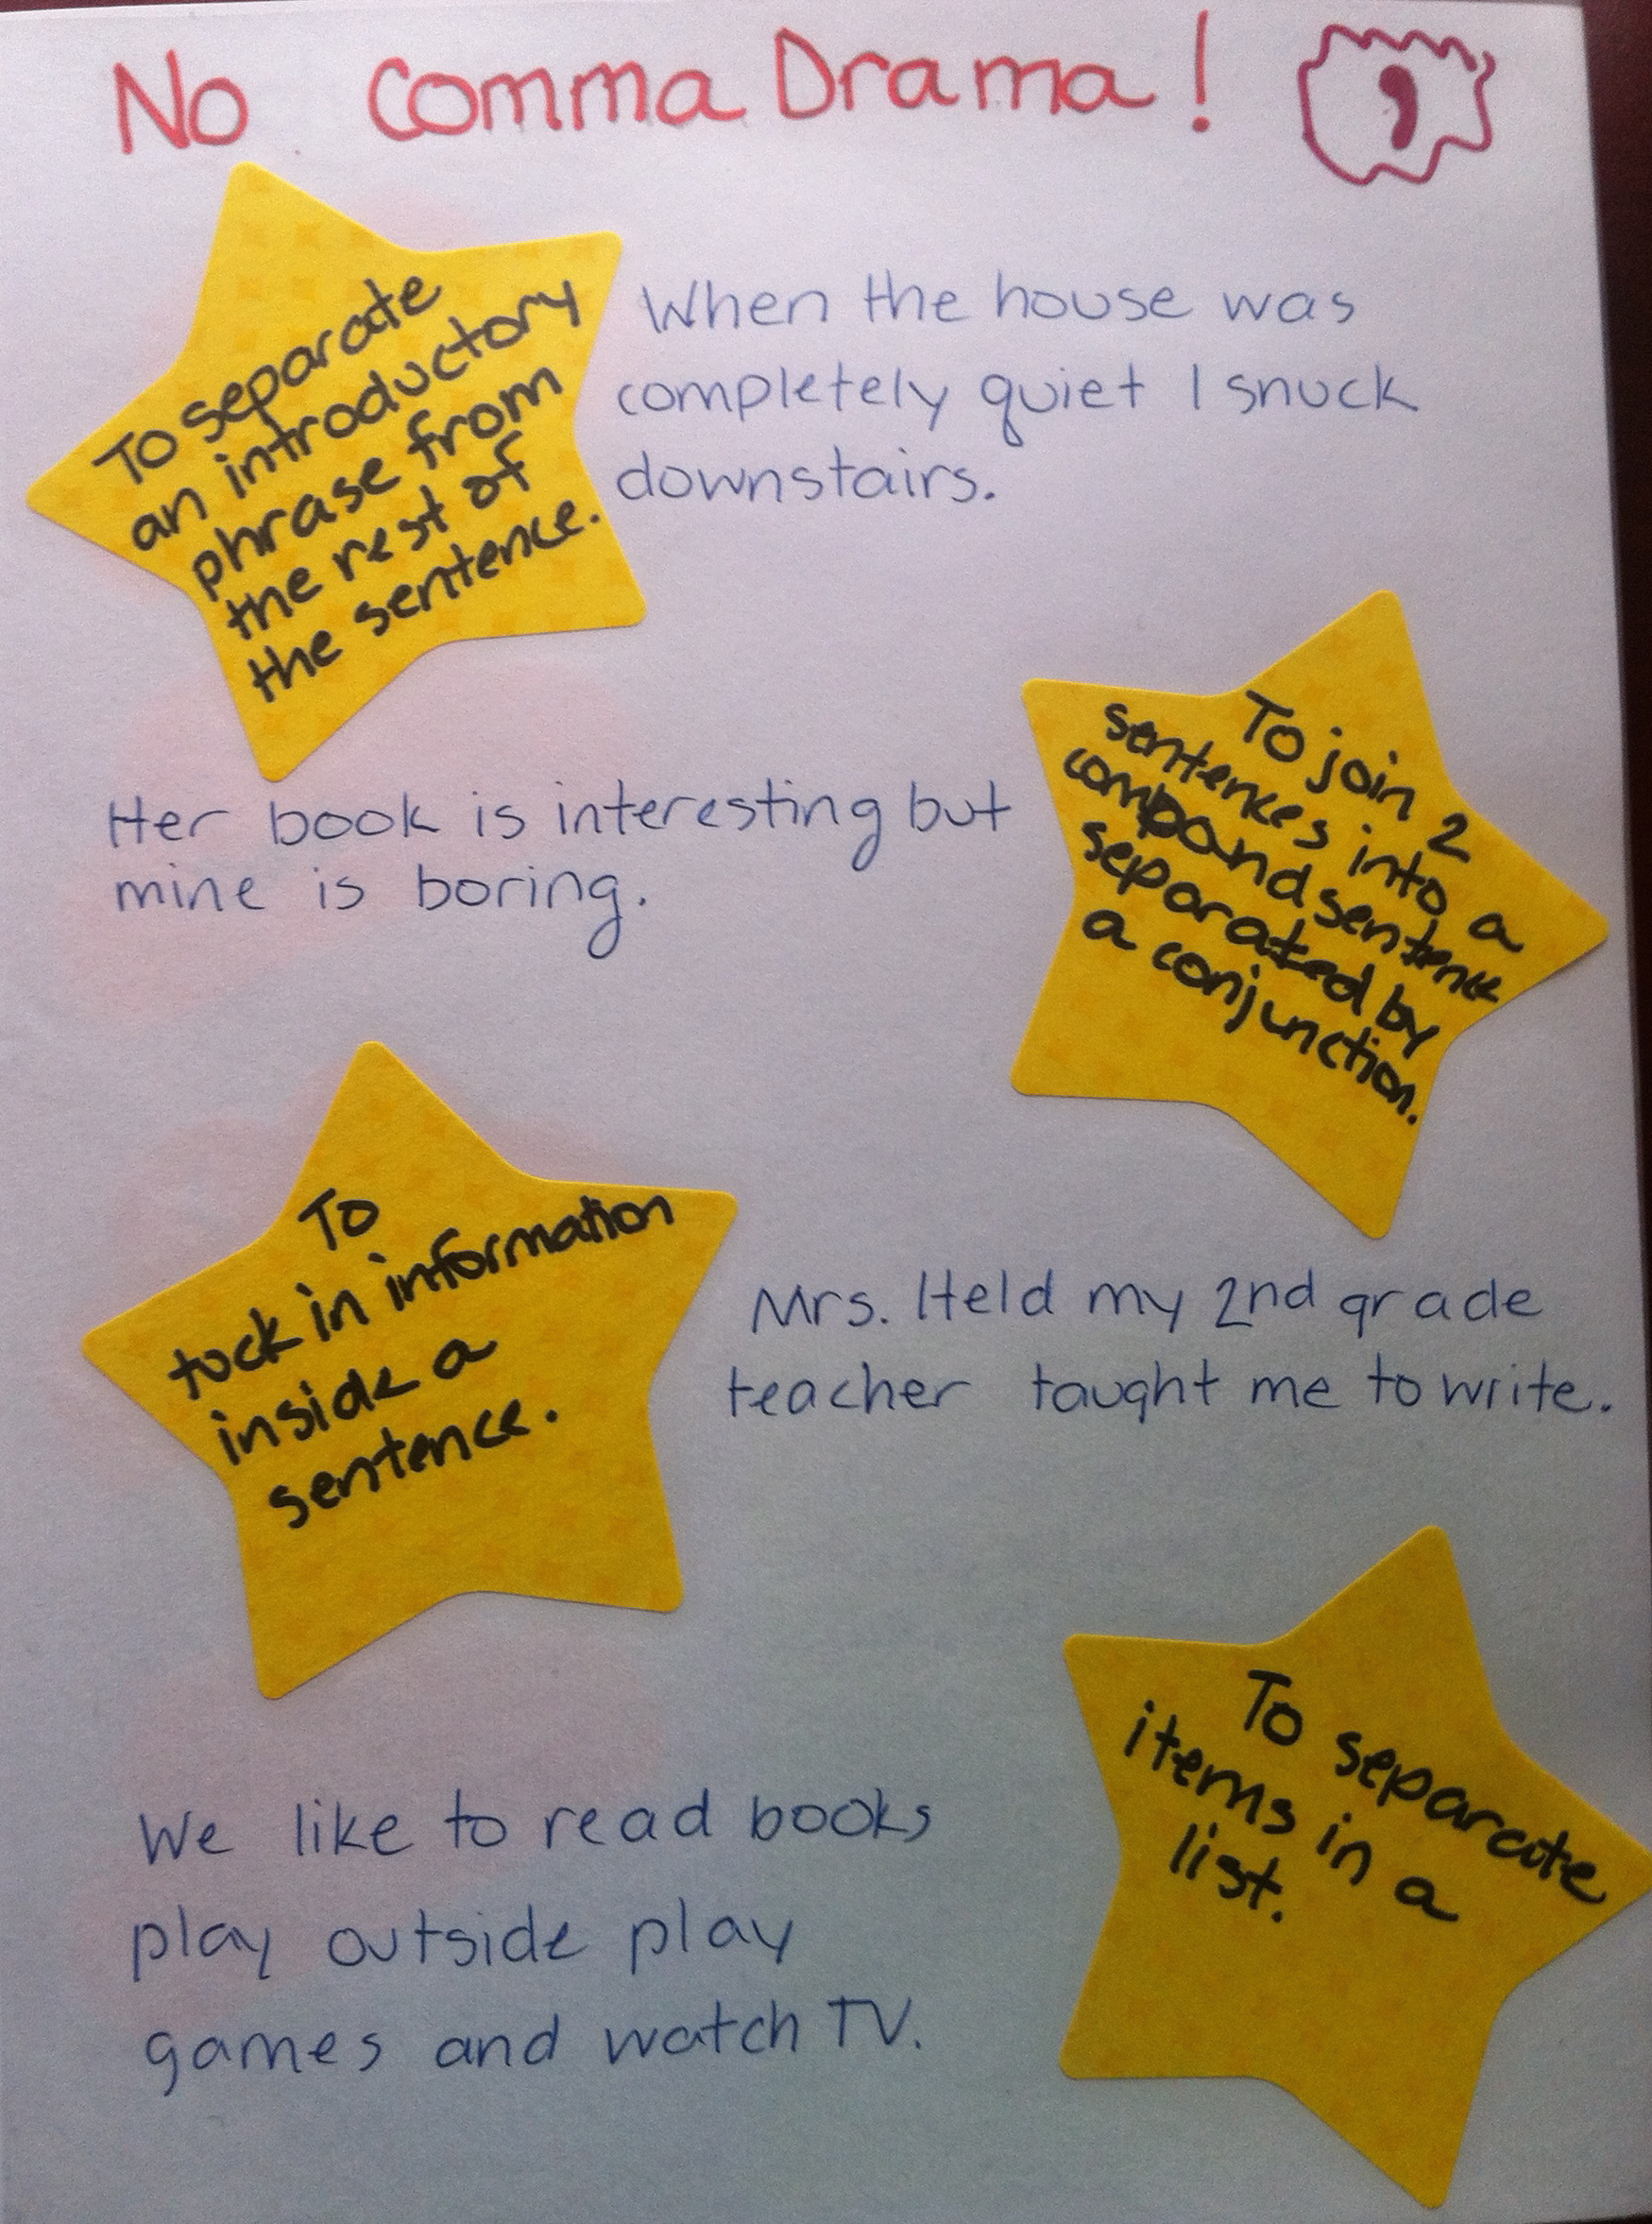 No Comma Drama!
,
To separate
an introductory
phrase from
the rest of
the sentence.
When the house was
completely quiet I snuck
downstairs.
To join 2
sentences into a
compound sentence
separated by
a conjunction.
Her book is interesting but
mine is boring.
To
tuck in information
inside a
sentence.
Mrs. Held my 2nd grade
teacher taught me to write.
To separate
items in a
list.
We like to read books
play outside play
games and watch TV.